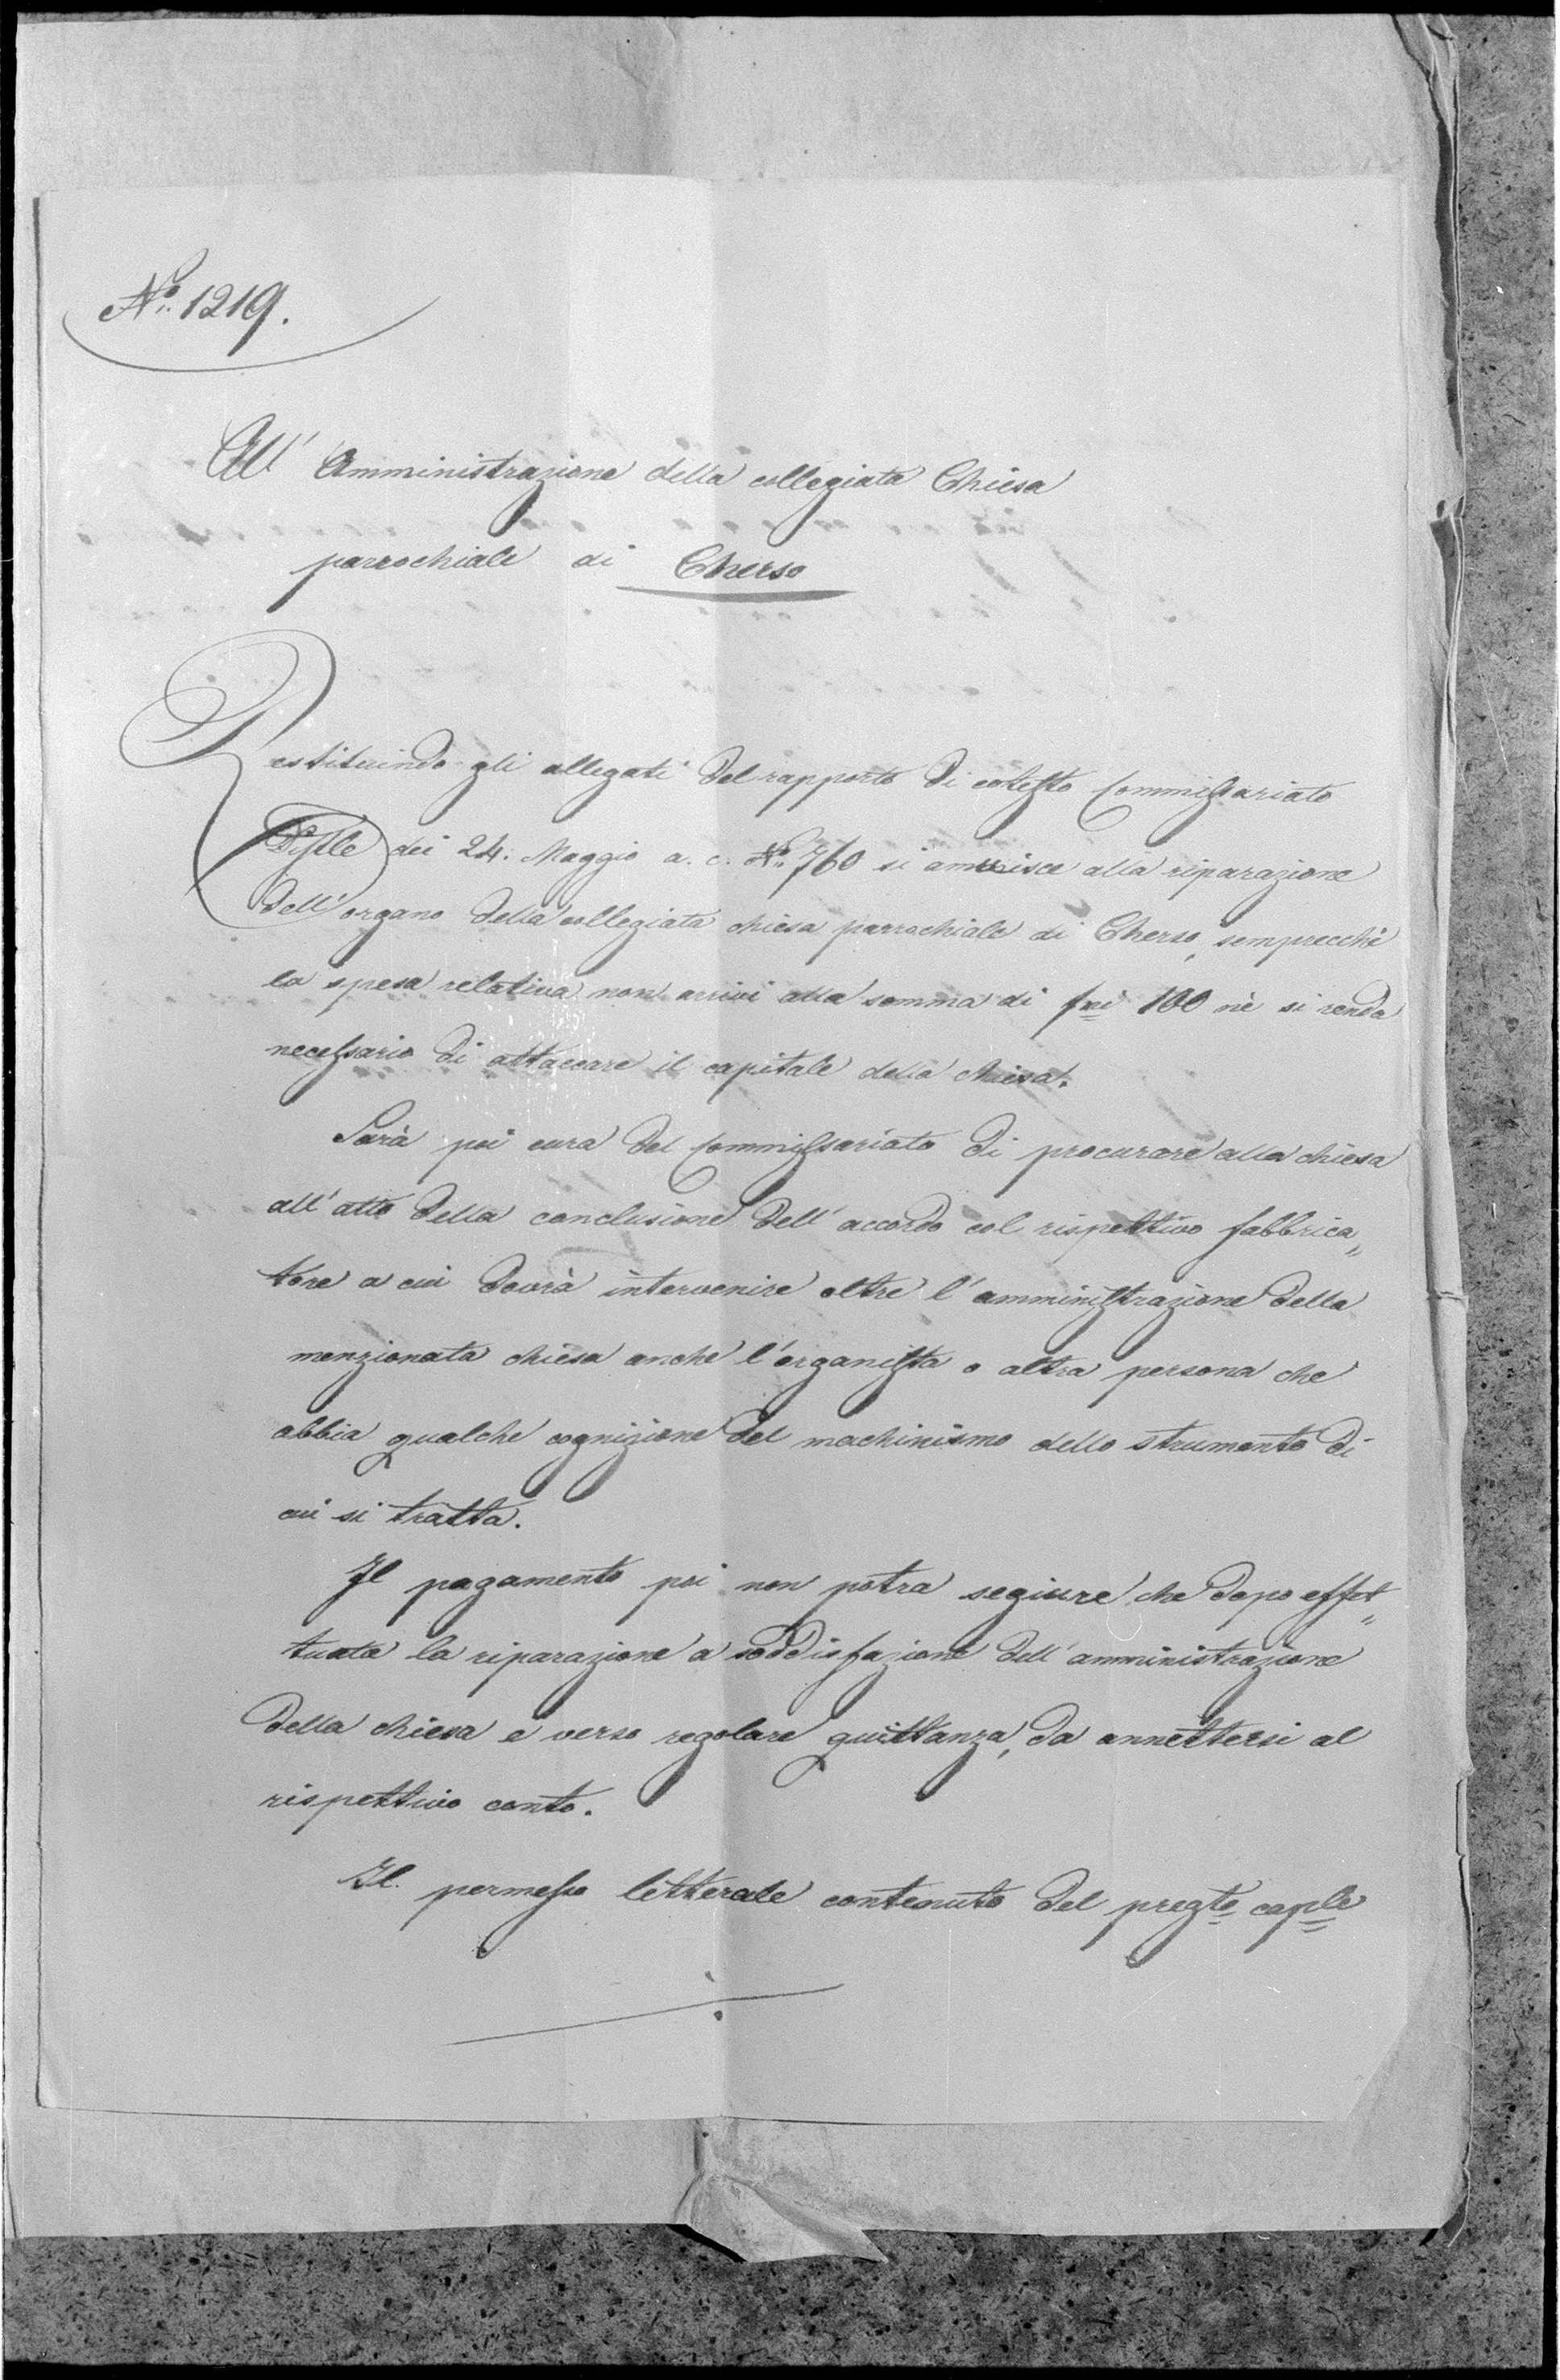 No. 1219.
All' Amministrazione della collegiata Chiesa
parrochiale di Cherso
Restituindo gli allegati del rapporto di cotesto Commissariato
Distle dei 24. Maggio a. c. No. 760 si annuisce alla riparazione
dell' organo della collegiata chiesa parrochiale di Cherso, semprecchè
la spesa relativa non arrivi alla somma di fni 100 nè si renda
necessario di attaccare il capitale della chiesa.
Sarà poi cura del Commissariato di procurare alla chiesa
all' atto della conclusione dell' accordo col rispettivo fabbrica„
tore a cui dovrà intervenire oltre l' amministrazione della
menzionata chiesa anche l' organista o altra persona che
abbia qualche cognizione del machinismo dello strumento di
cui si tratta.
Il pagamento poi non potra seguire che dopo effet„
tuata la riparazione a soddisfazione dell' amministrazione
della chiesa e verso regolare quittanza, da annettersi al
rispettivo conto.
Il permesso letterale contenuto del pregto caple